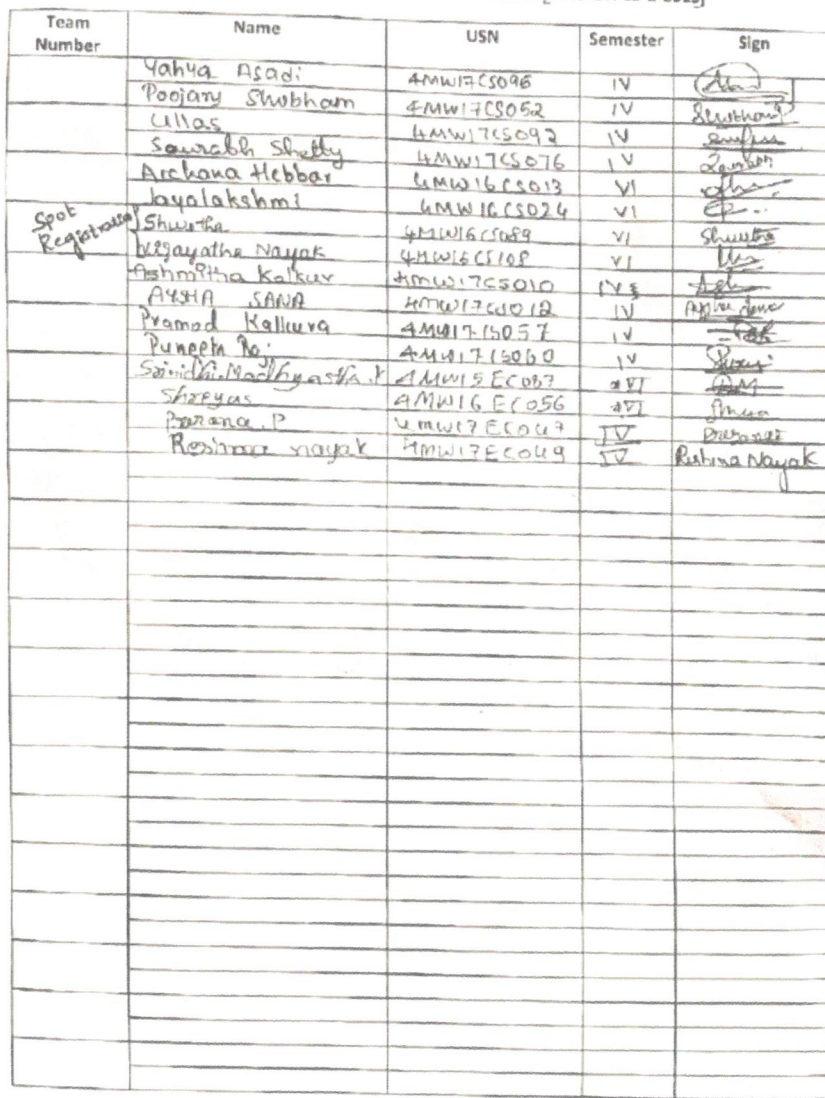 Team Number Name USN Semester Sign
Yahya Asadi 4MW17CS096 IV
Poojary Shubham 4MW17CS052 IV Shubham
Ullas 4MW17CS092 IV
Sourabh Shetty 4MW17CS076 IV
Archana Hebbar 4MW16CS013 VI
Jayalakshmi 4MW16CS024 VI
Spot Registration Shwetha 4MW16CS089 VI Shwetha
Nayak 4MW16CS108 VI
Ashmitha Kalkur 4MW17CS010 IV
AYSHA SANA 4MW17CS012 IV Aysha Sana
Pramod Kalkura 4MW17CS057 IV
Puneeth 4MW17CS060 IV
Srinidhi Madhyastha 4MW15EC087 VI
Shreyas 4MW16EC056 VI
Prerana.P 4MW17EC047 IV Prerana
Reshma nayak 4MW17EC049 IV Reshma Nayak